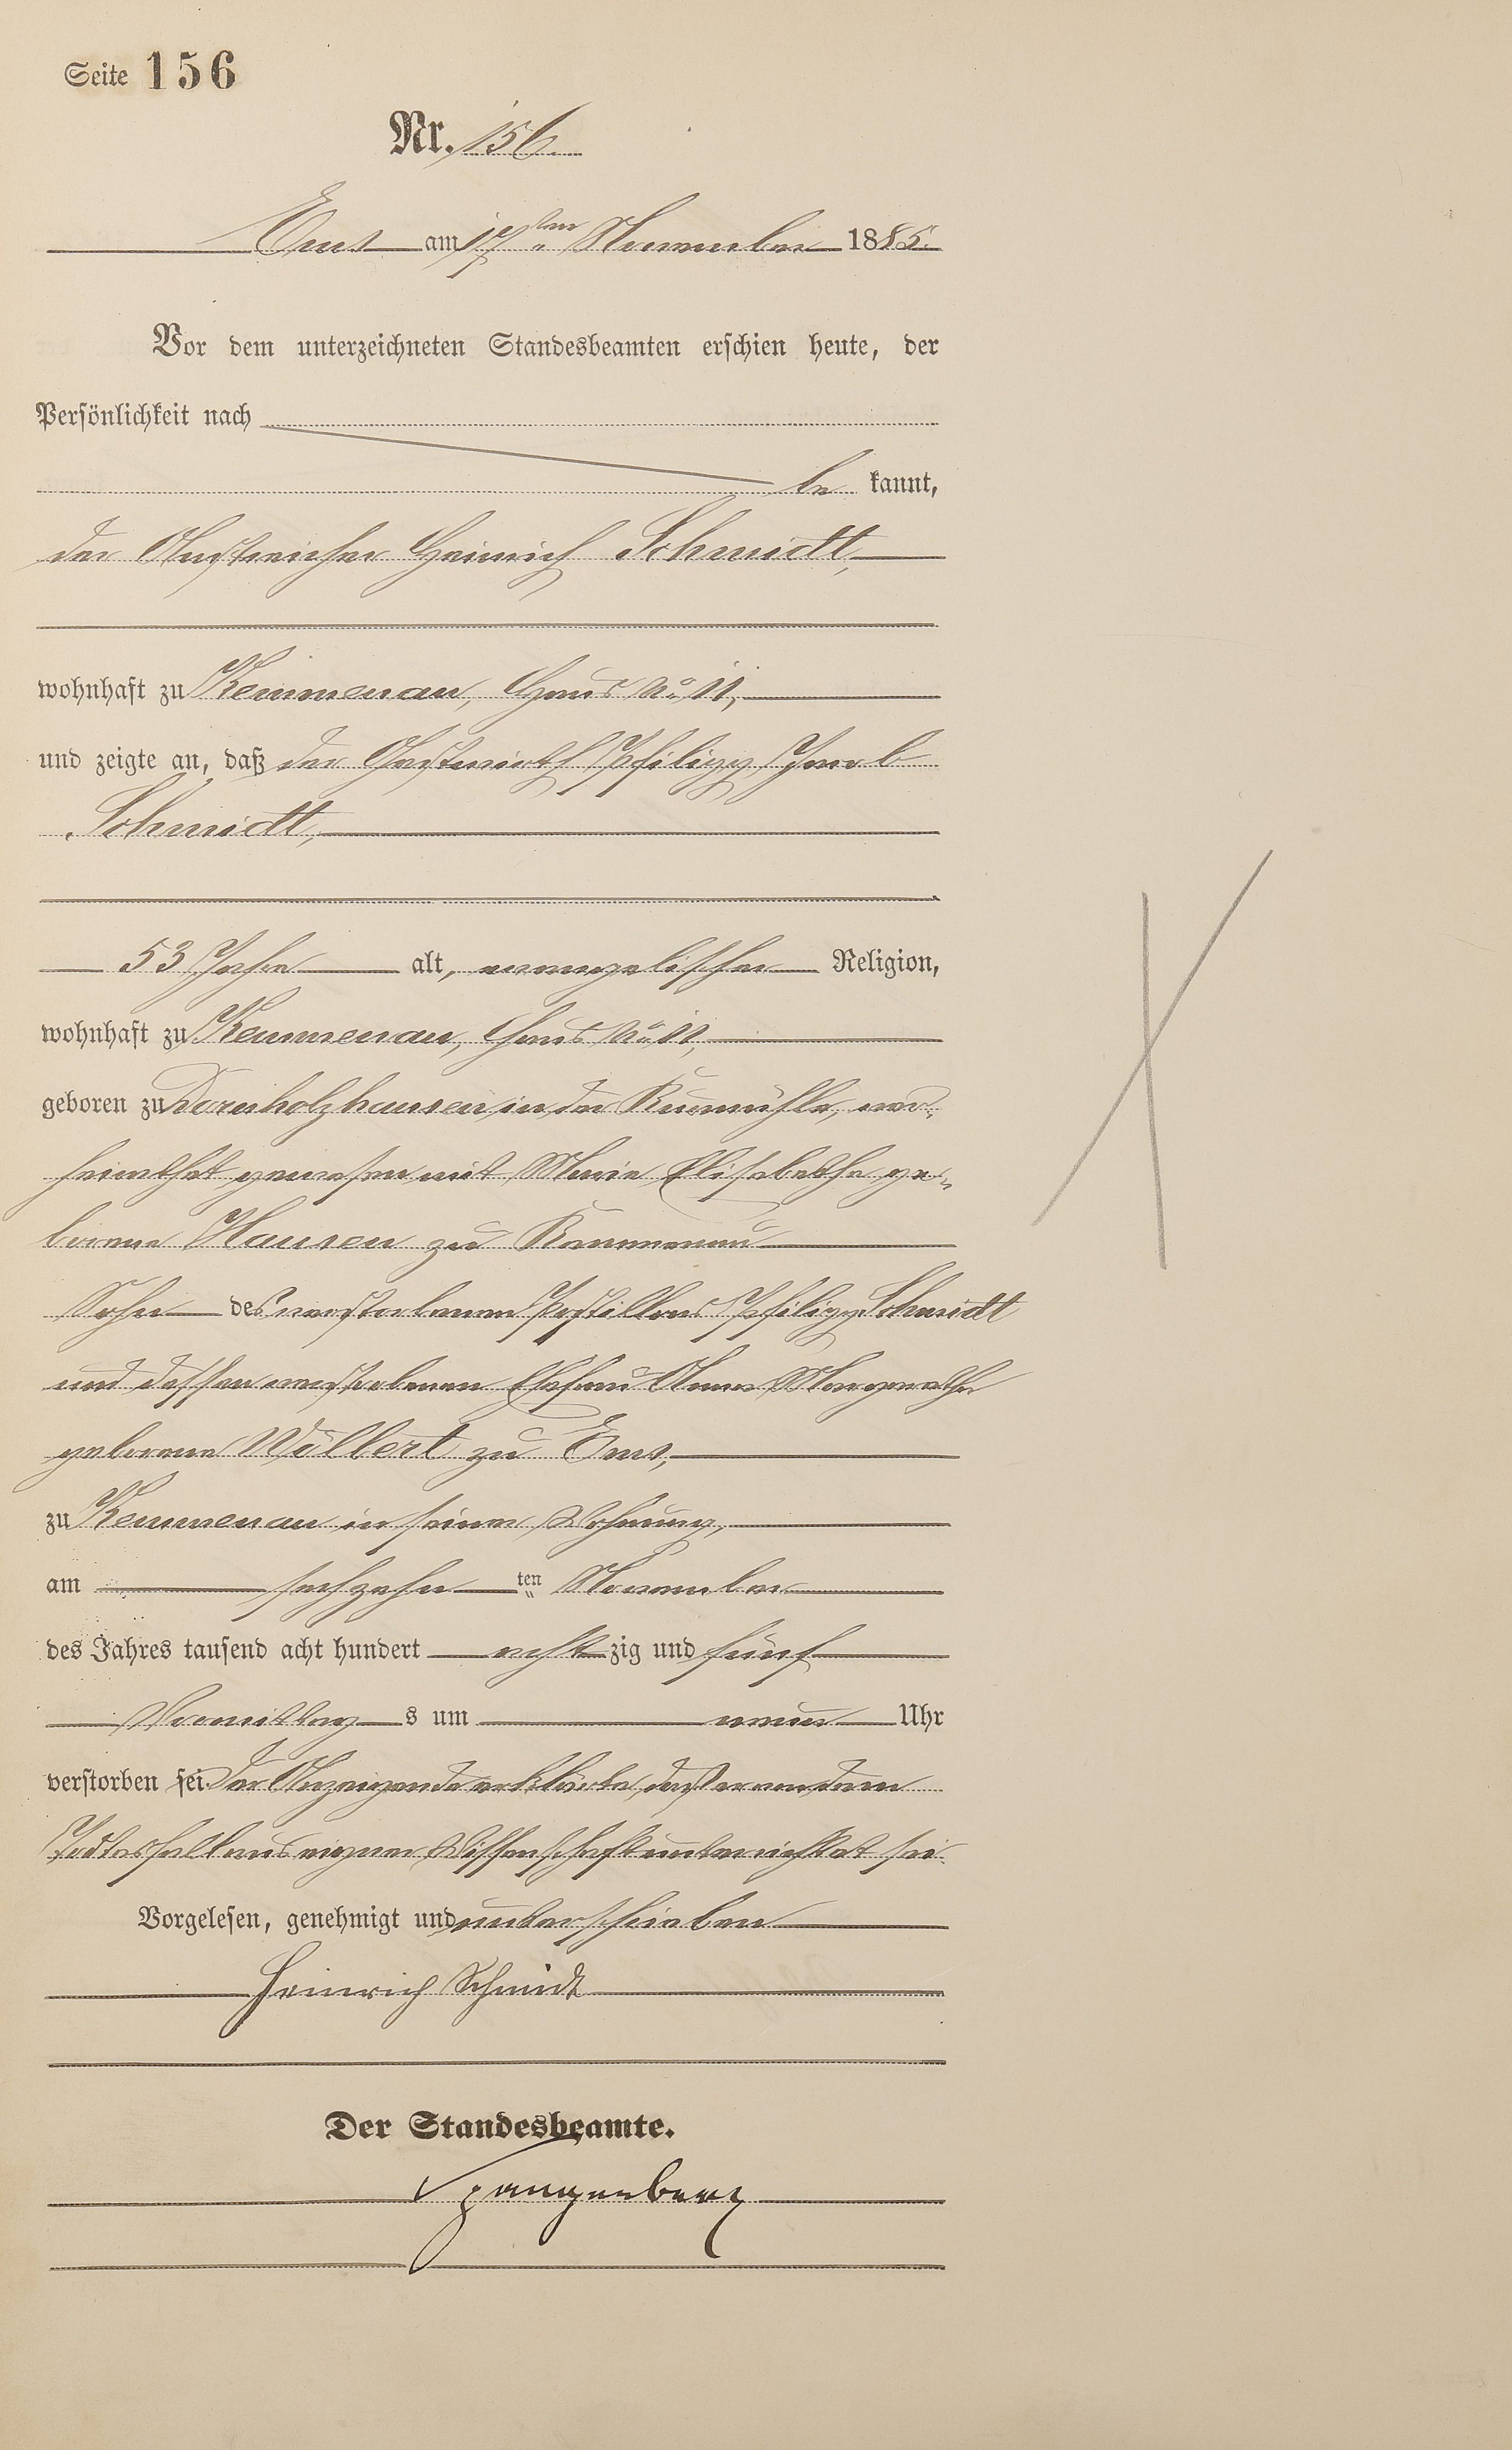 Seite 156
Nr. 156.
Ems am 17ten November 1885.
Vor dem unterzeichneten Standesbeamten erschien heute, der
Persönlichkeit nach
be kannt,
der Anstreicher Heinrich Schmidt,
wohnhaft zu Kemmenau, Haus No 11,
und zeigte an, daß der Gastwirth Philipp Jacob
Schmidt,
53 Jahre alt, evangelischer Religion,
wohnhaft zu Kemmenau, Haus No 11,
geboren zu Dornholzhausen in der Kuxmühle, ver-
heirathet gewesen mit Marie Elisabethe ge-
borene Hansen zu Kemmenau
Sohn des verstorbenen Postillons Philipp Schmidt
und dessen verstorbenen Ehefrau Anna Margarethe
geborene Wölbert zu Ems,
zu Kemmenau in seiner Wohnung,
am sechzehn ten November
des Jahres tausend acht hundert acht zig und fünf
Vormittag s um neun Uhr
verstorben sei. Der Anzeigende erklärte, daß er von dem
Todesfall aus eigner Wissenschaft unterrichtet sei.
Vorgelesen, genehmigt und unterschrieben
Heinrich Schmidt
Der Standesbeamte.
Spangenberg